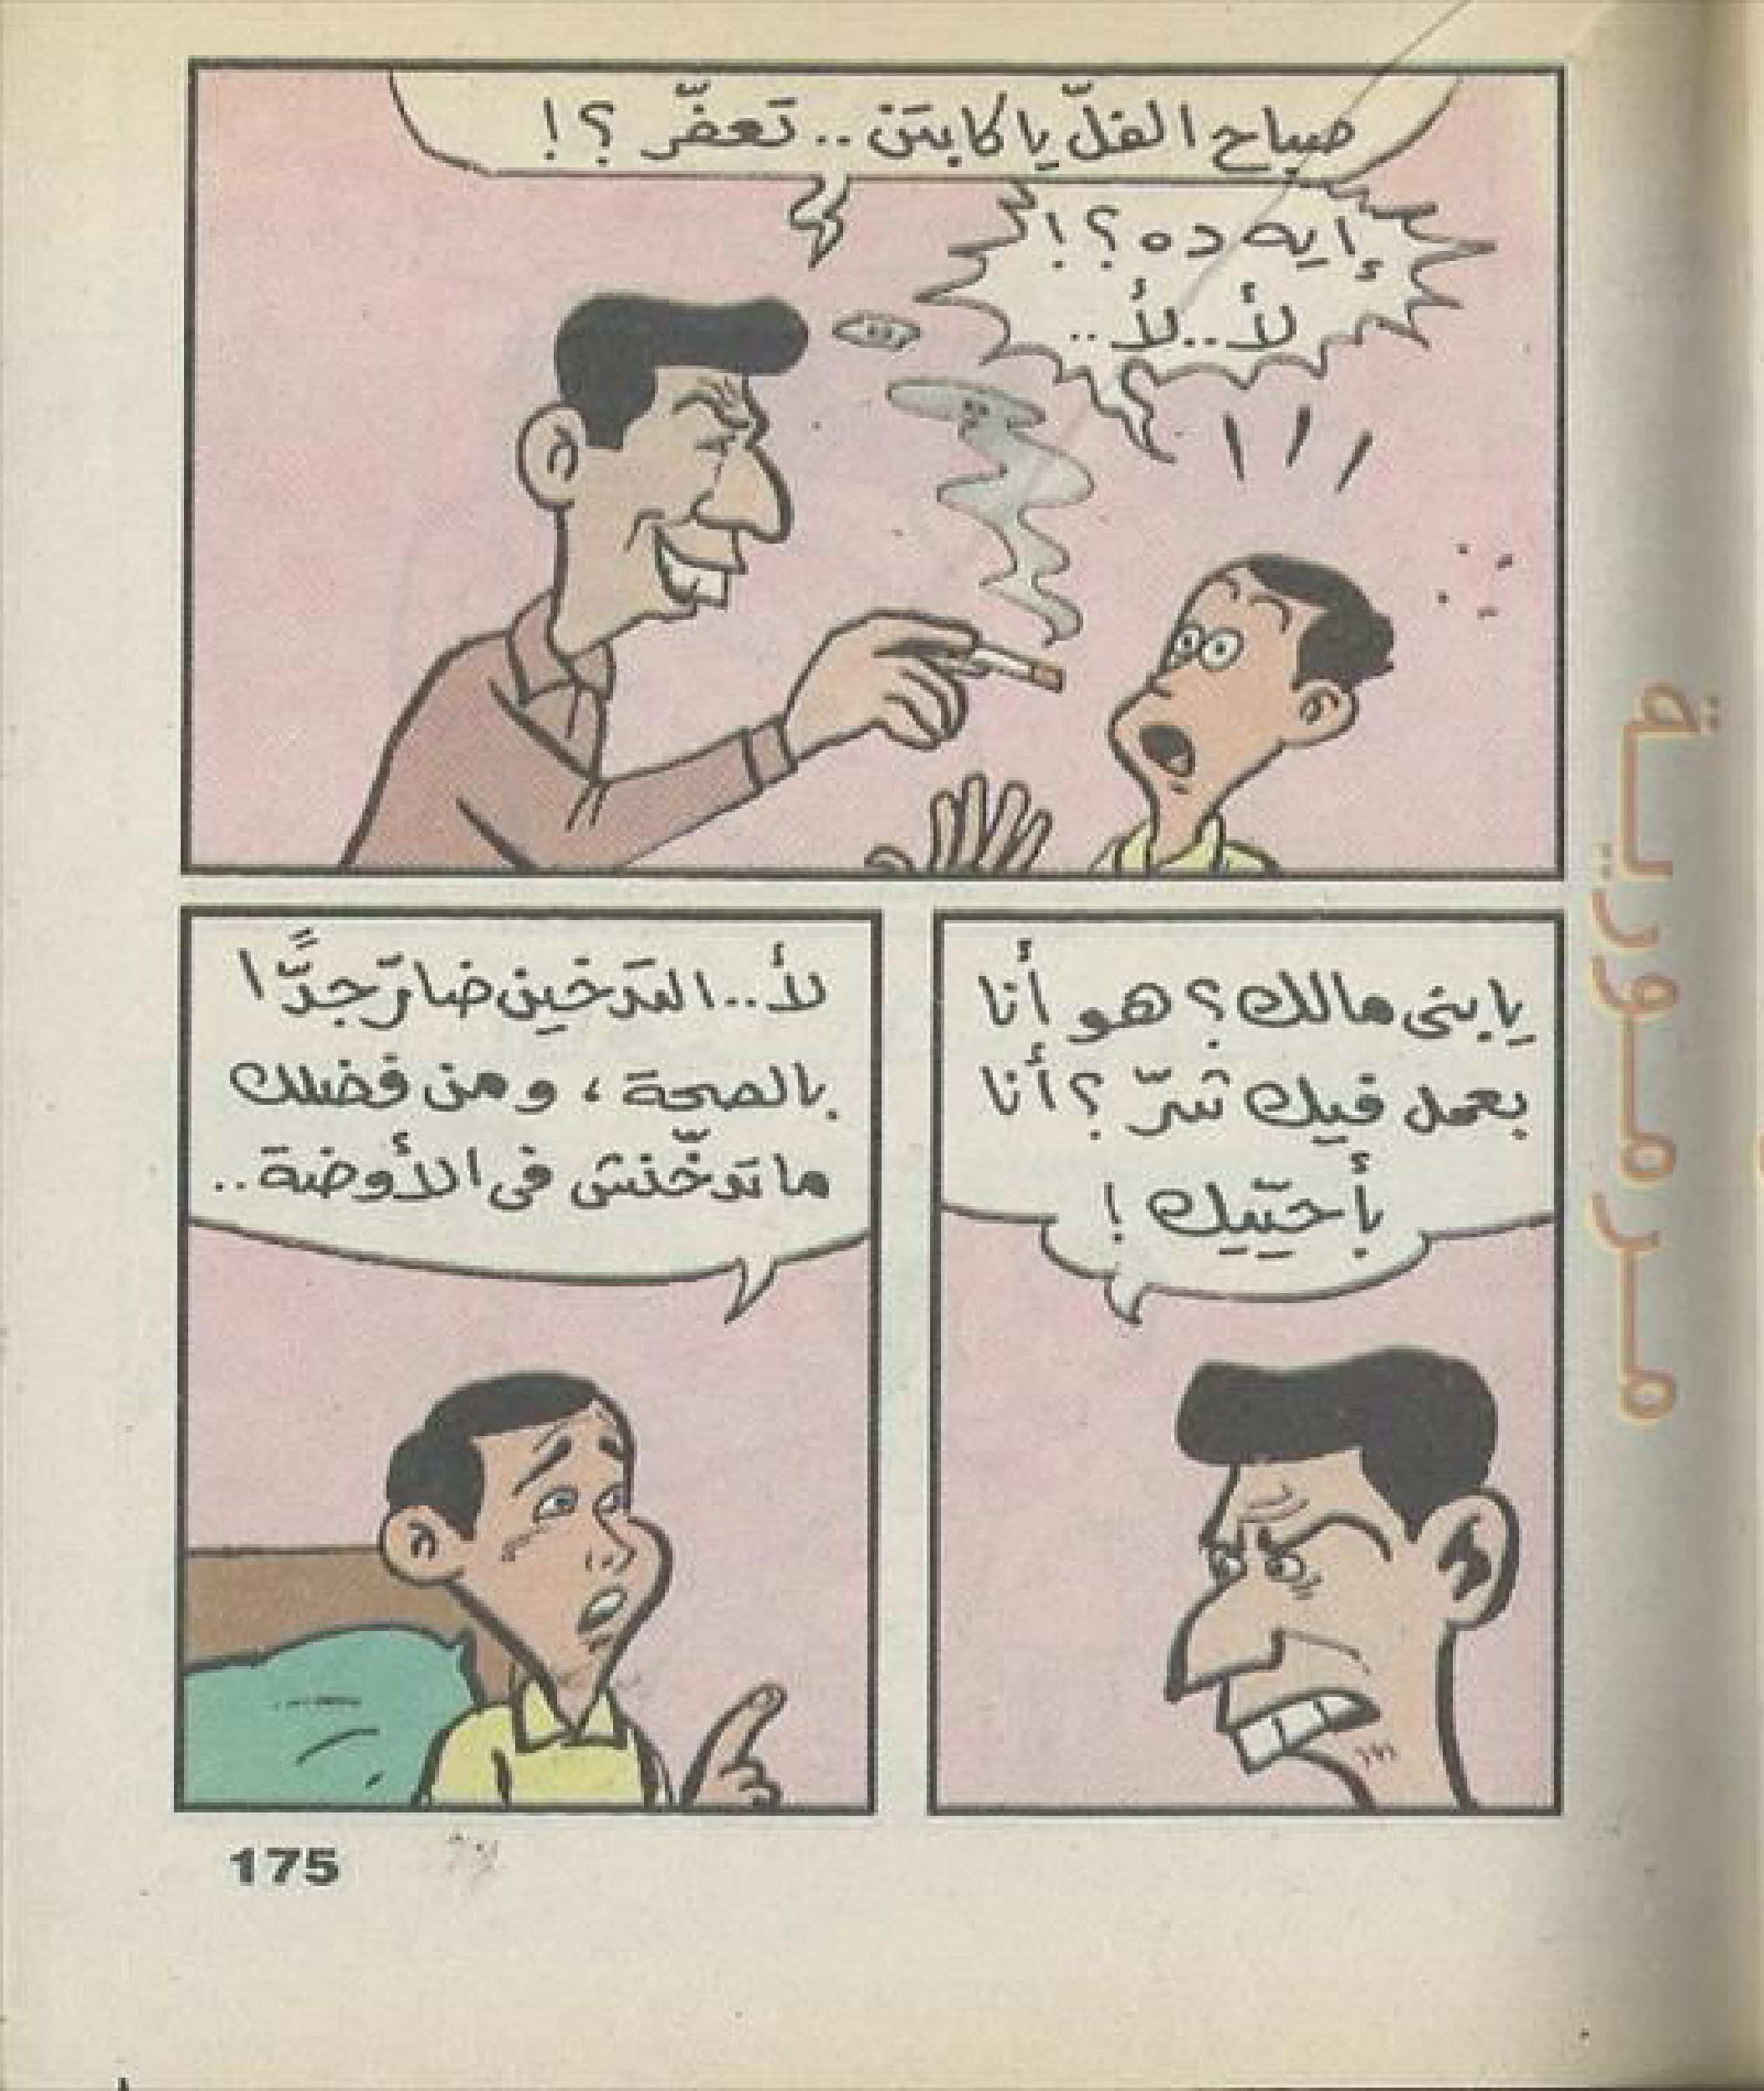 صباح الفلّ يا كابتن.. تَعفّر؟!
إيه ده؟!
لأ..لأ..
يا بنى مالك؟ هو أنا
بعمل فيك شرّ؟ أنا
بأحيّيك!
لأ.. التدخين ضارّ جدًّا
بالصحة، ومن فضلك
ما تدخّنش فى الأوضة..
مرمورية
175